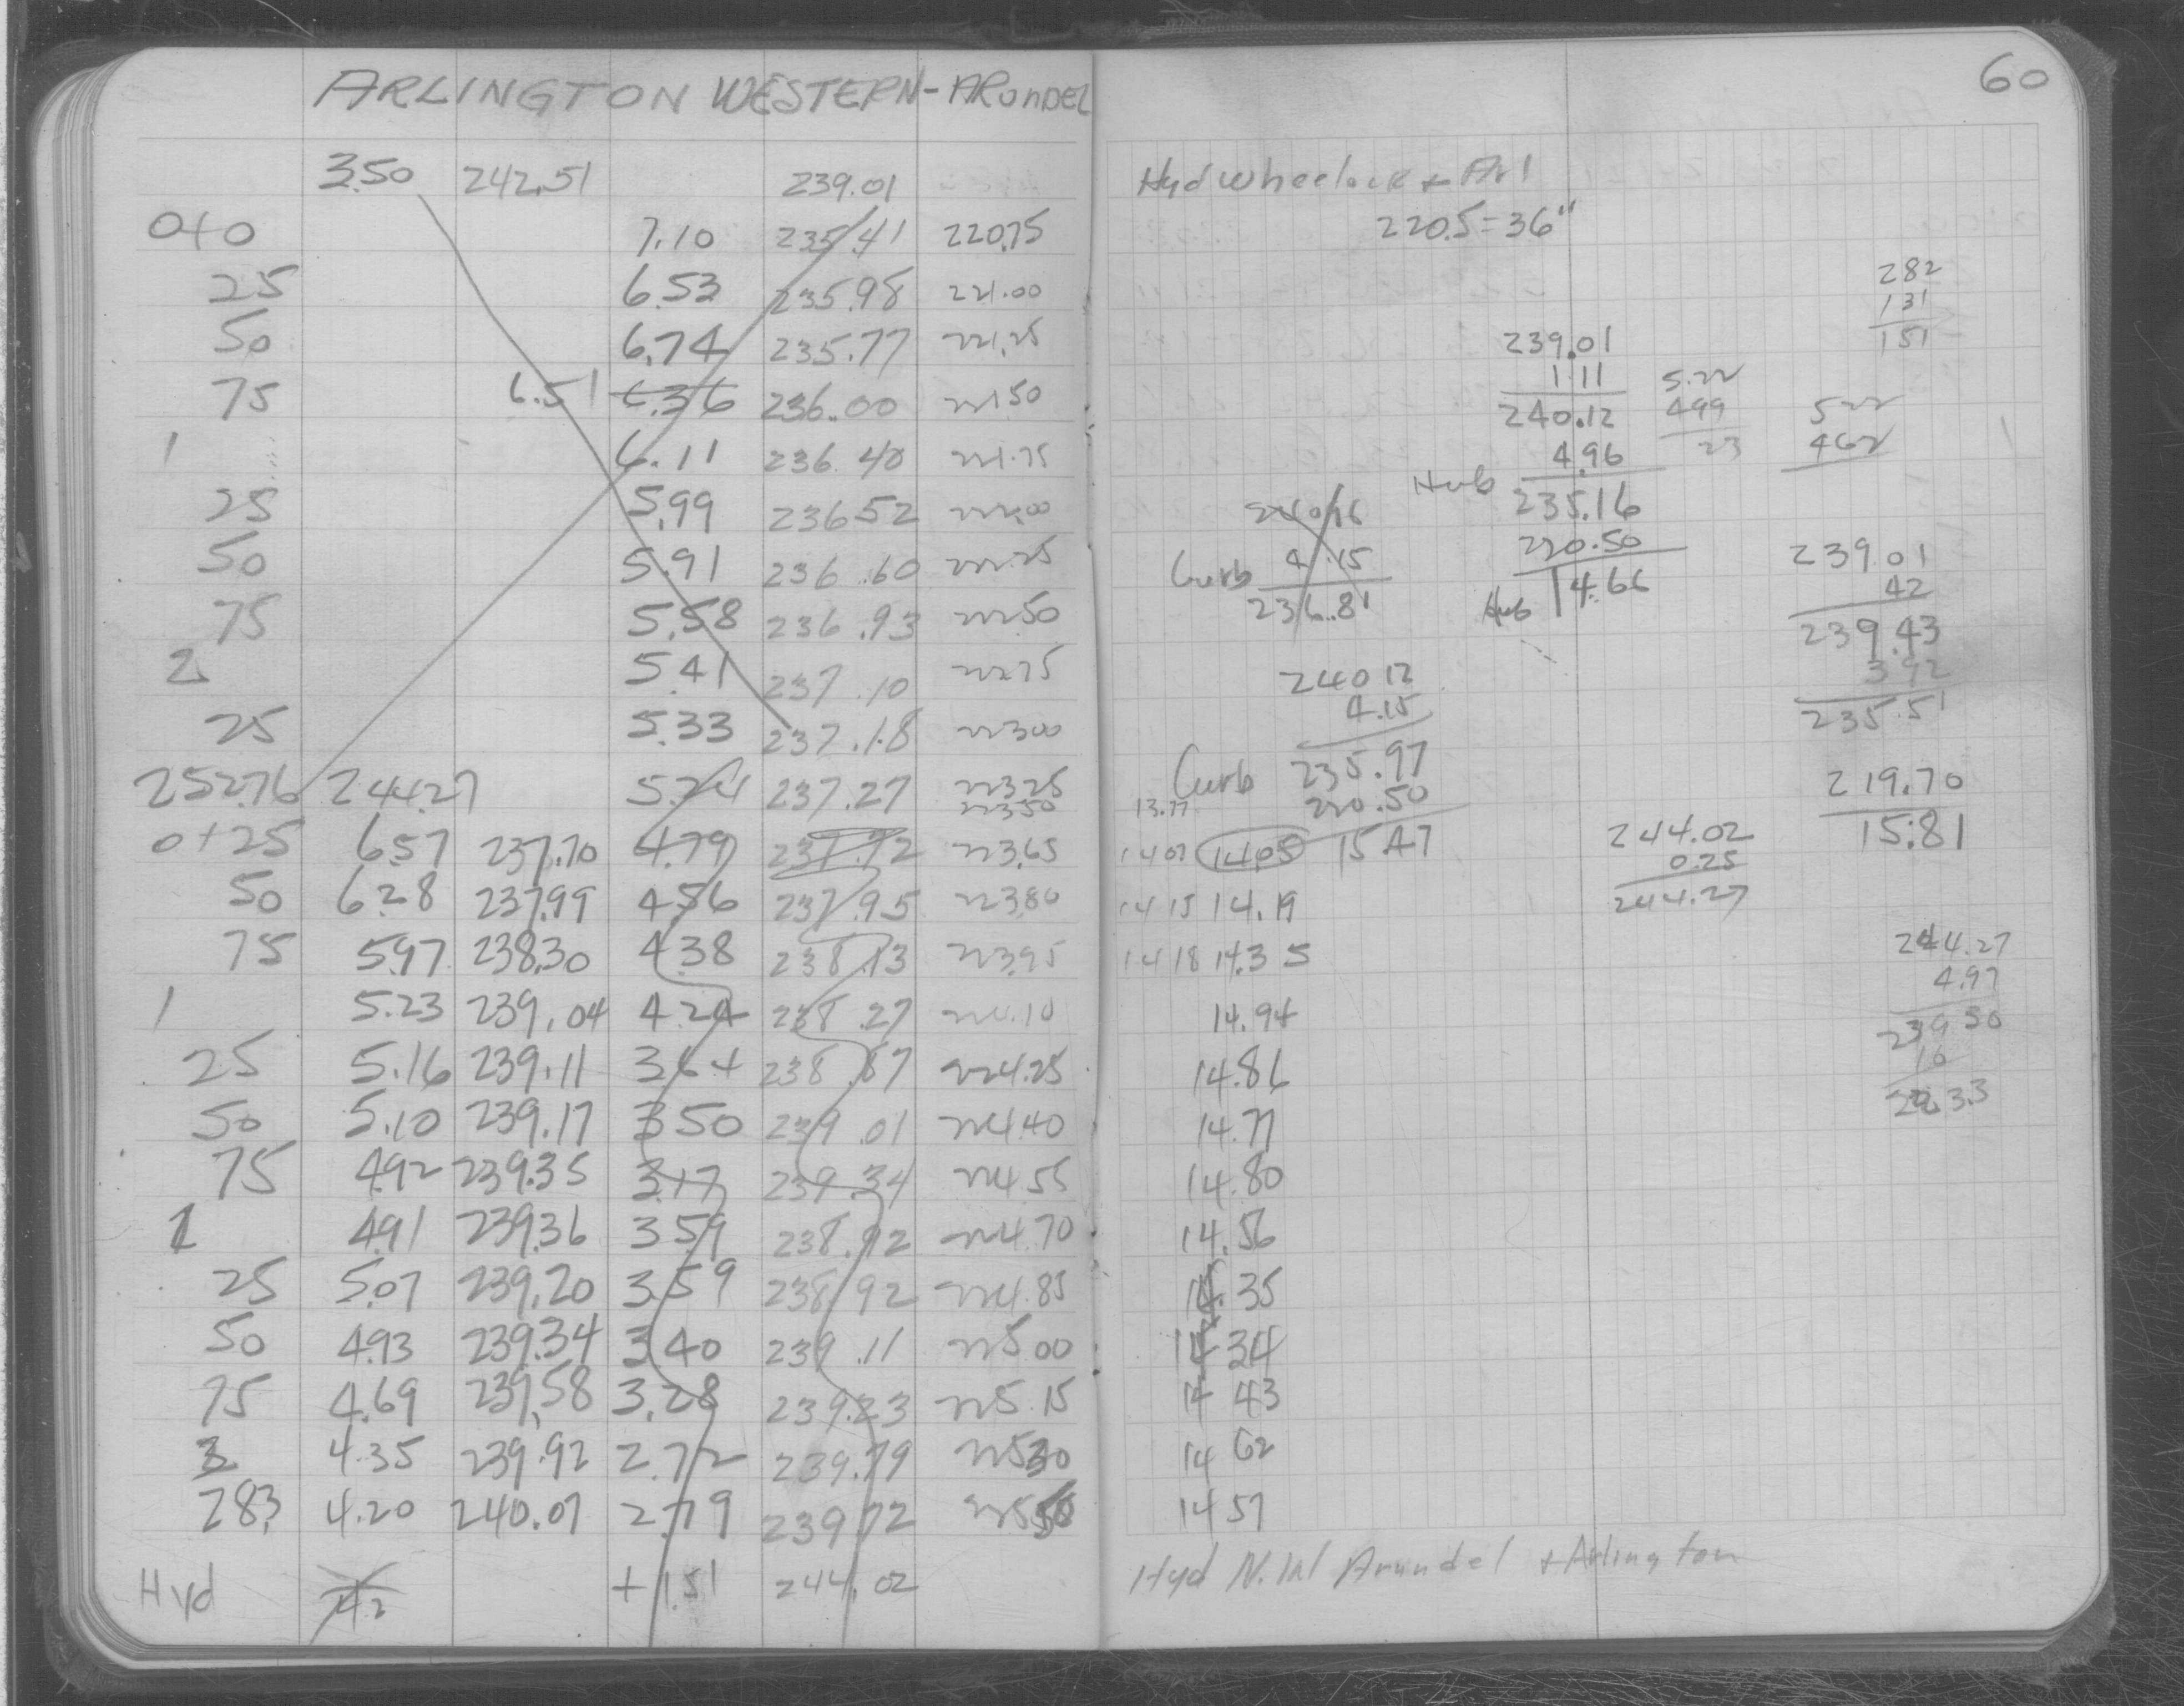 60
ARLINGTON WESTERN-ARUNDEL
3.50 242.51 239.01
0+0 7.10 235.41 220.75
25 6.53 235.98 221.00
50 6.74 235.77 221.25
75 6.51 6.36 236.00 221.50
1 6.11 236.40 221.75
25 5.99 236.52 222.00
50 5.91 236.60 222.25
75 5.58 236.93 222.50
2 5.41 237.10 222.75
25 5.33 237.18 223.00
252.76 244.27 5.24 237.27 223.25
223.50
0+25 6.57 237.70 4.79 237.72 223.65
50 6.28 237.99 4.56 237.95 223.80
75 5.97 238.30 4.38 238.13 223.95
1 5.23 239.04 4.24 238.27 224.10
25 5.16 239.11 3.64 238.87 224.25
50 5.10 239.17 3.50 239.01 224.40
75 4.92 239.35 3.17 239.34 224.55
4.91 239.36 3.59 238.92 224.70
25 5.07 239.20 3.59 238.92 224.85
50 4.93 239.34 3.40 239.11 225.00
75 4.69 239.58 3.28 239.23 225.15
3 4.35 239.92 2.72 239.79 225.30
283 4.20 240.07 2.79 239.72
Hyd +1.51 244.02
Hyd Wheelock + Arl
220.5=36"
282
131
151
239.01
1.11
240.12
4.96
Hub 235.16
220.50
Hub 14.66
5.22
499
23
522
462
Curb 4.15
236.81
239.01
42
239.43
3.92
235.51
219.70
15.81
240 12
4.15
Curb 235.97
220.50
15.47
13.77
14 07 14.05
14 15 14.19
14 18 14.35
14.94
14.86
14.77
14.80
14.56
14.35
14 34
14 43
14 62
14 57
244.02
0.25
244.27
244.27
4.97
239 30
16
223.3
Hyd N.W Arundel + Arlington